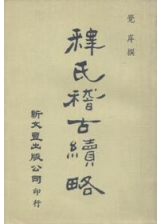 覺岸撰
釋氏稽古續略
新文豐出版公司印行